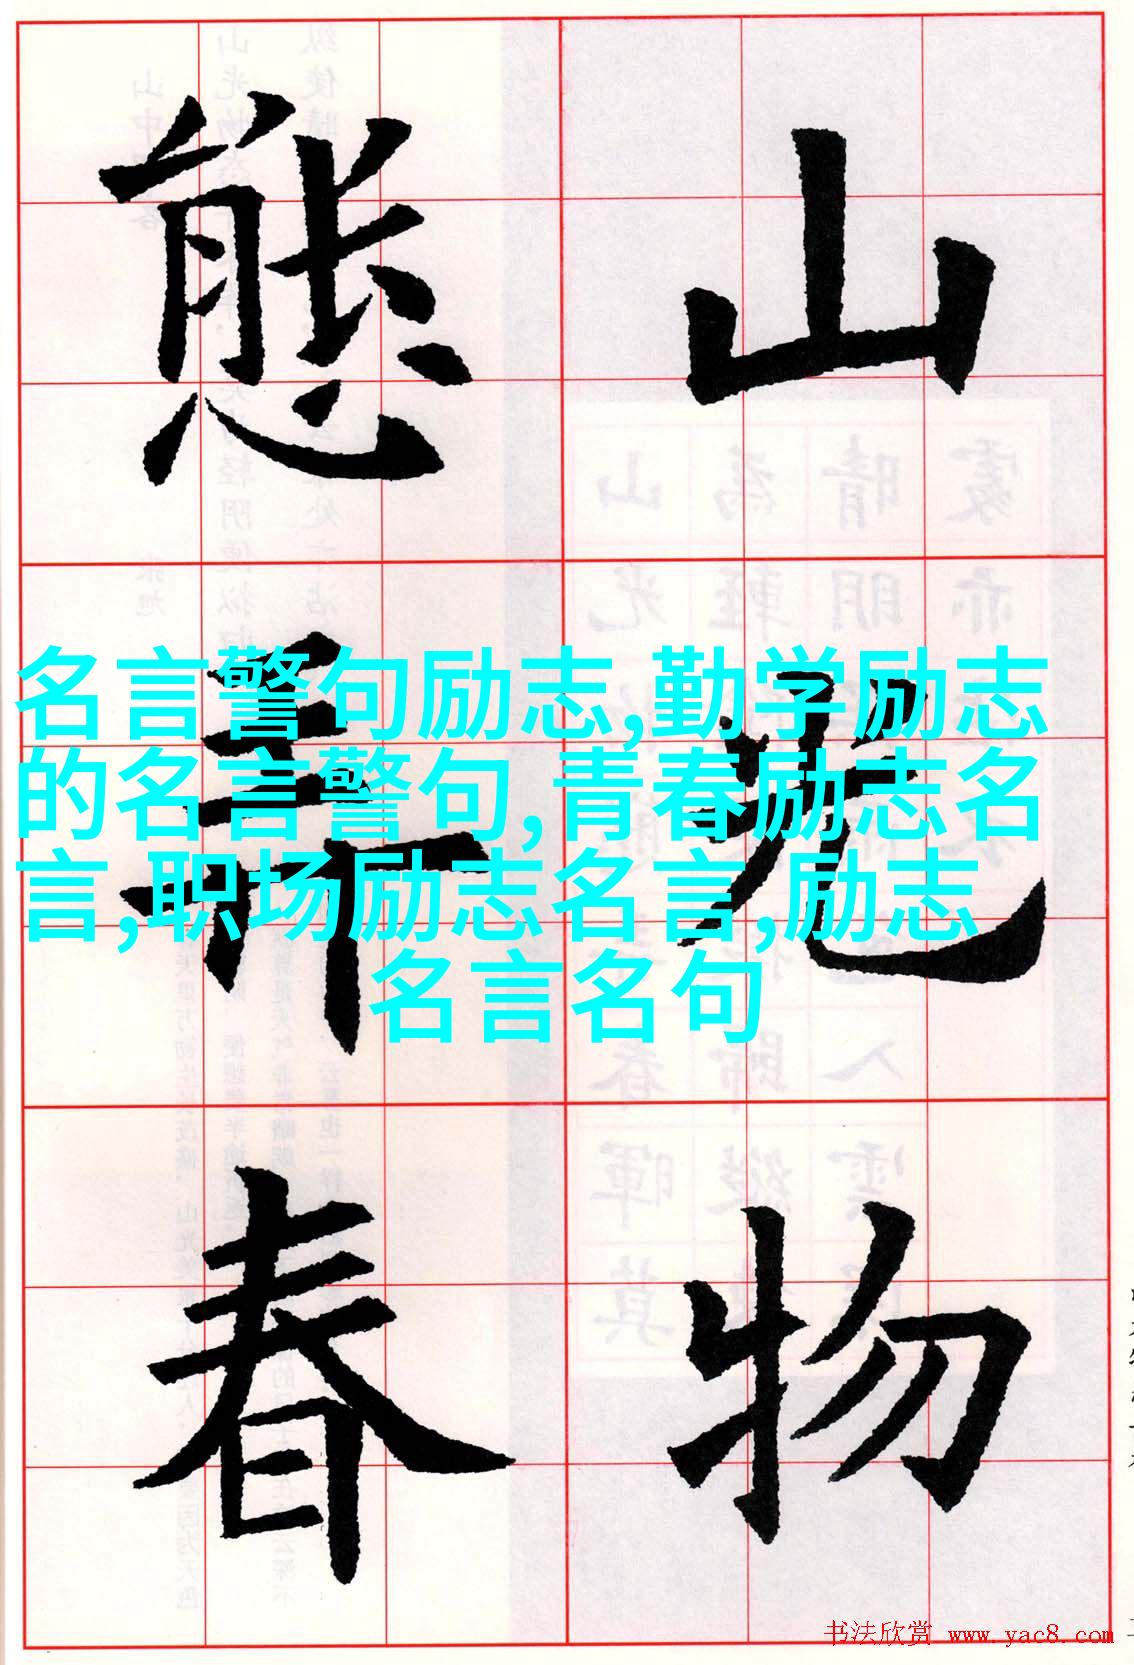 山光物
態弄春
名言警句励志,勤学励志
的名言警句,青春励志名
言,职场励志名言,励志
名言名句
书法欣赏 www.yac8.com